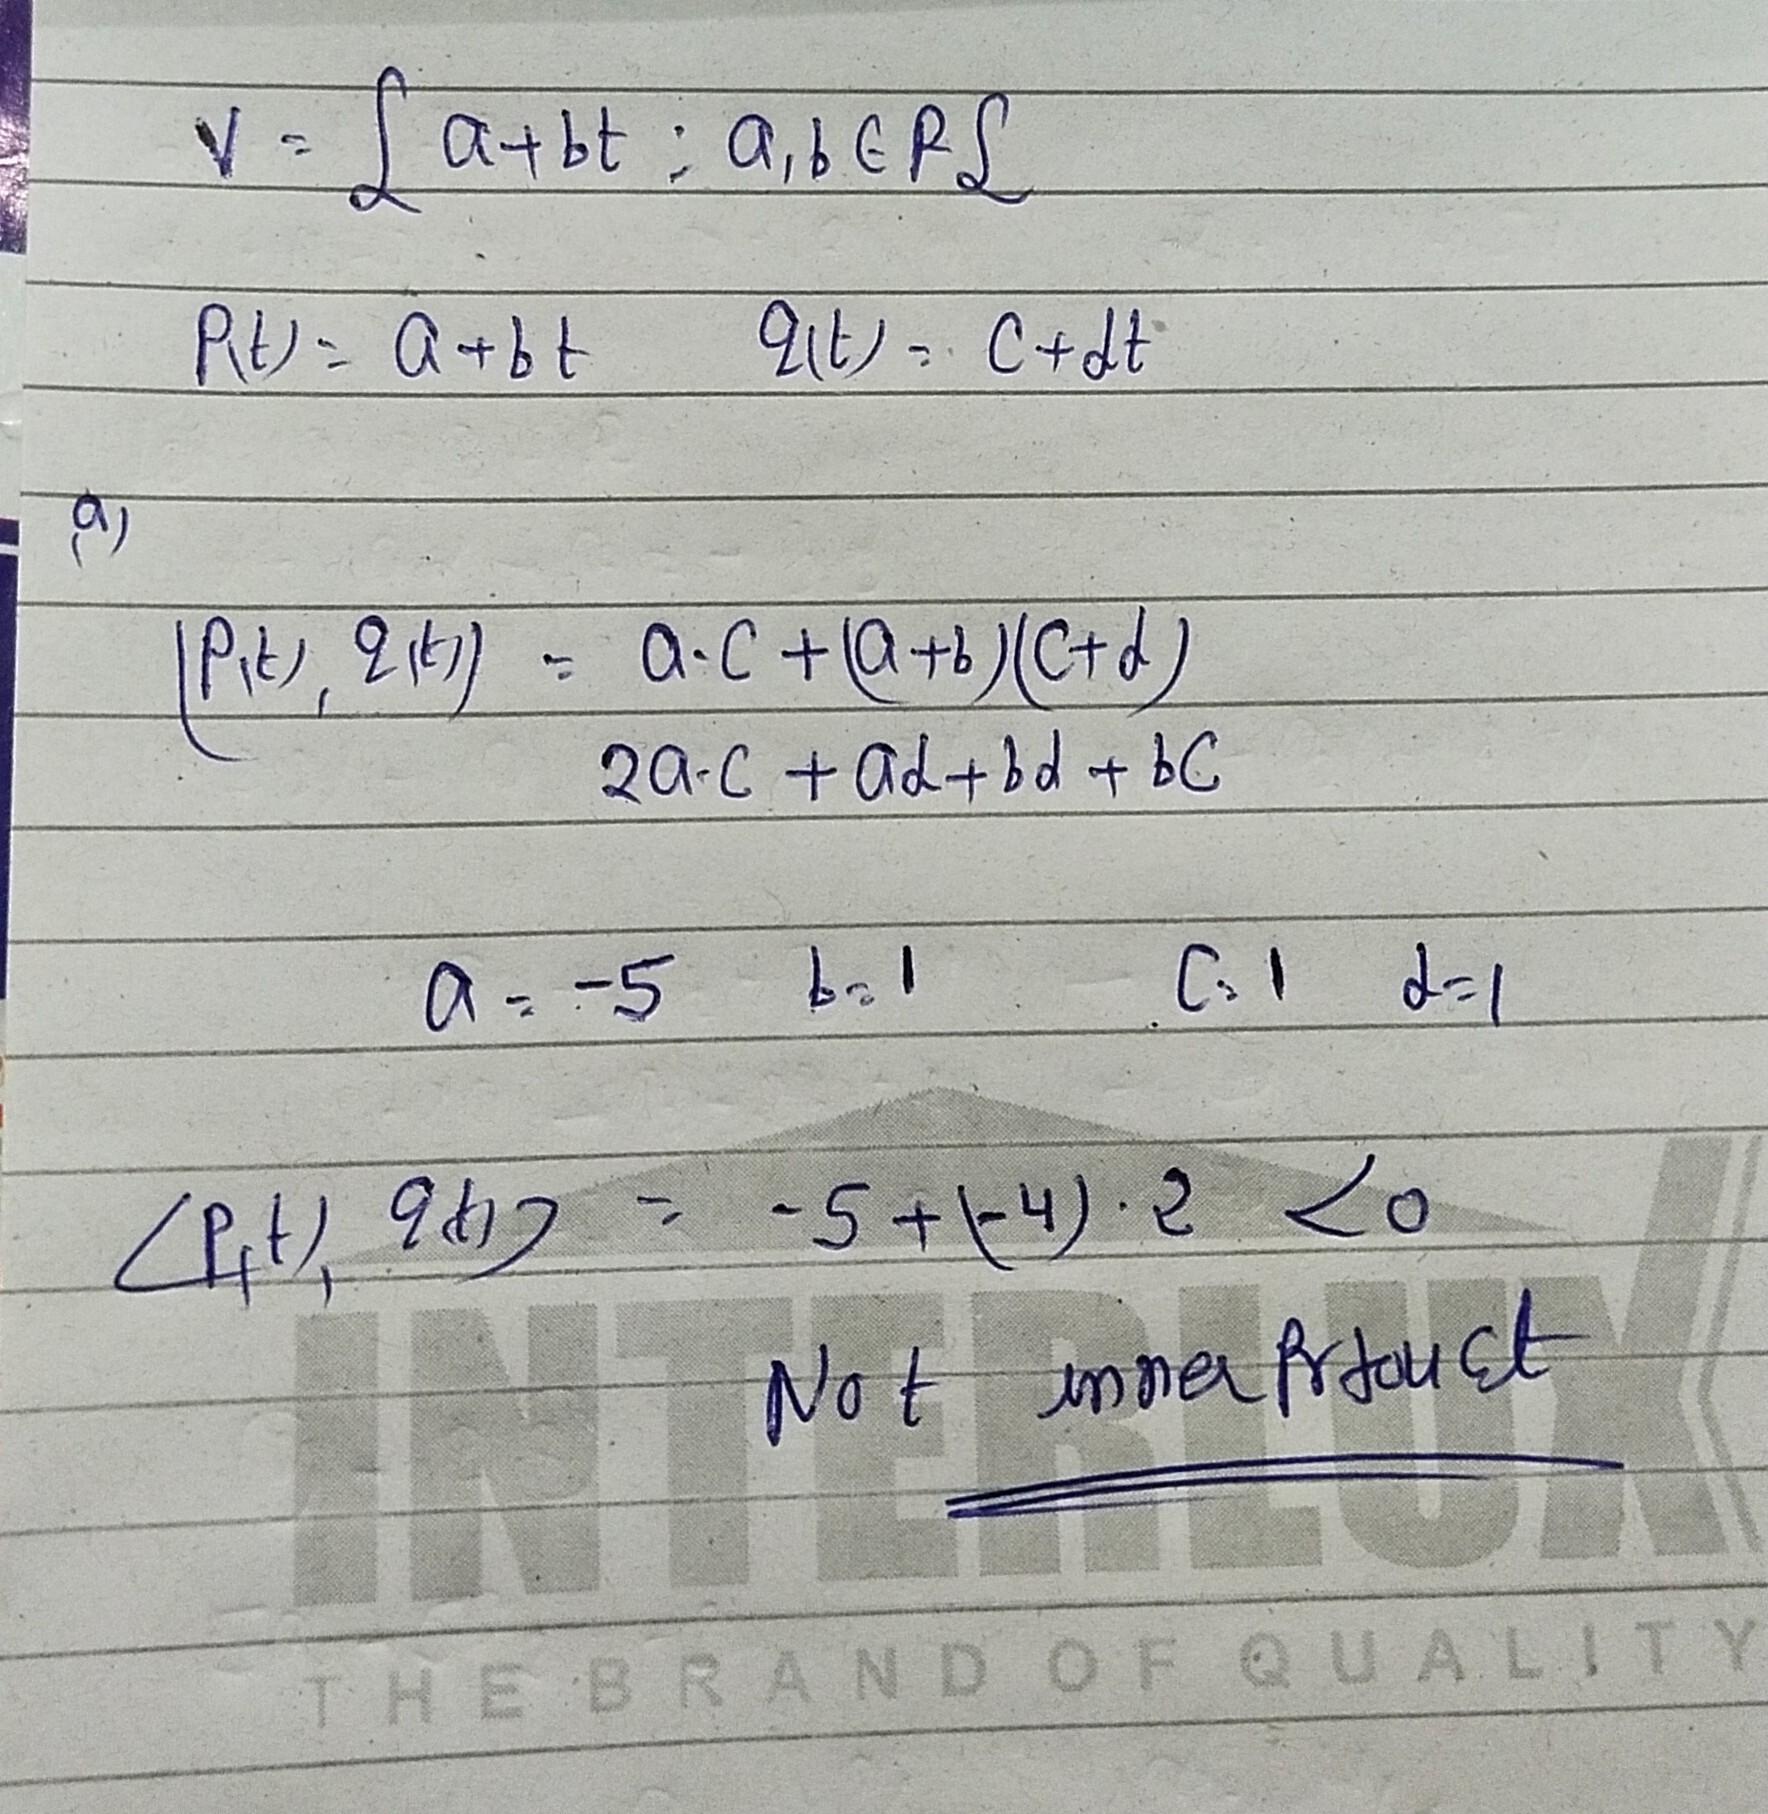 V = { a+bt : a,b ∈ R }
P(t) = a+bt q(t) = c+dt
a)
(P(t), q(t)) = a·c + (a+b)(c+d)
2a·c + ad+bd + bc
a = -5 b=1 c=1 d=1
<P(t), q(t)> = -5+(-4)·2 <0
Not inner Prtouct
INTERLUX
THE BRAND OF QUALITY